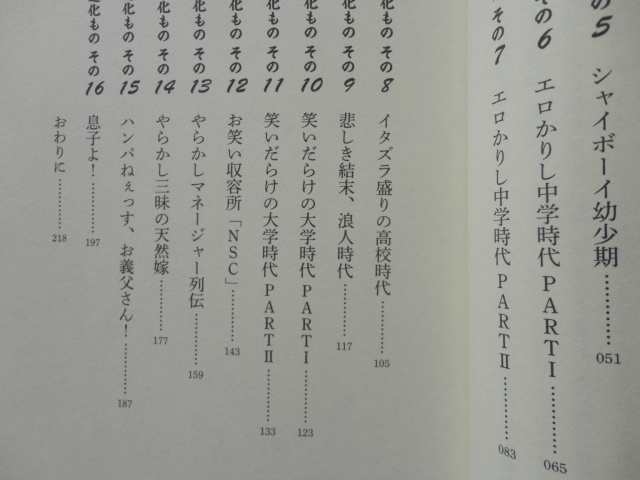 の5 シャイボーイ幼少期…………051
その6 エロかりし中学時代 PART I…………065
その7 エロかりし中学時代 PART II…………083
化もの その8 イタズラ盛りの高校時代…………105
化もの その9 悲しき結末、浪人時代…………117
化もの その10 笑いだらけの大学時代 PART I…………123
化もの その11 笑いだらけの大学時代 PART II…………133
化もの その12 お笑い収容所「NSC」…………143
化もの その13 やらかしマネージャー列伝…………159
化もの その14 やらかし三昧の天然嫁…………177
化もの その15 ハンパねぇっす、お義父さん！…………187
化もの その16 息子よ！…………197
おわりに…………218